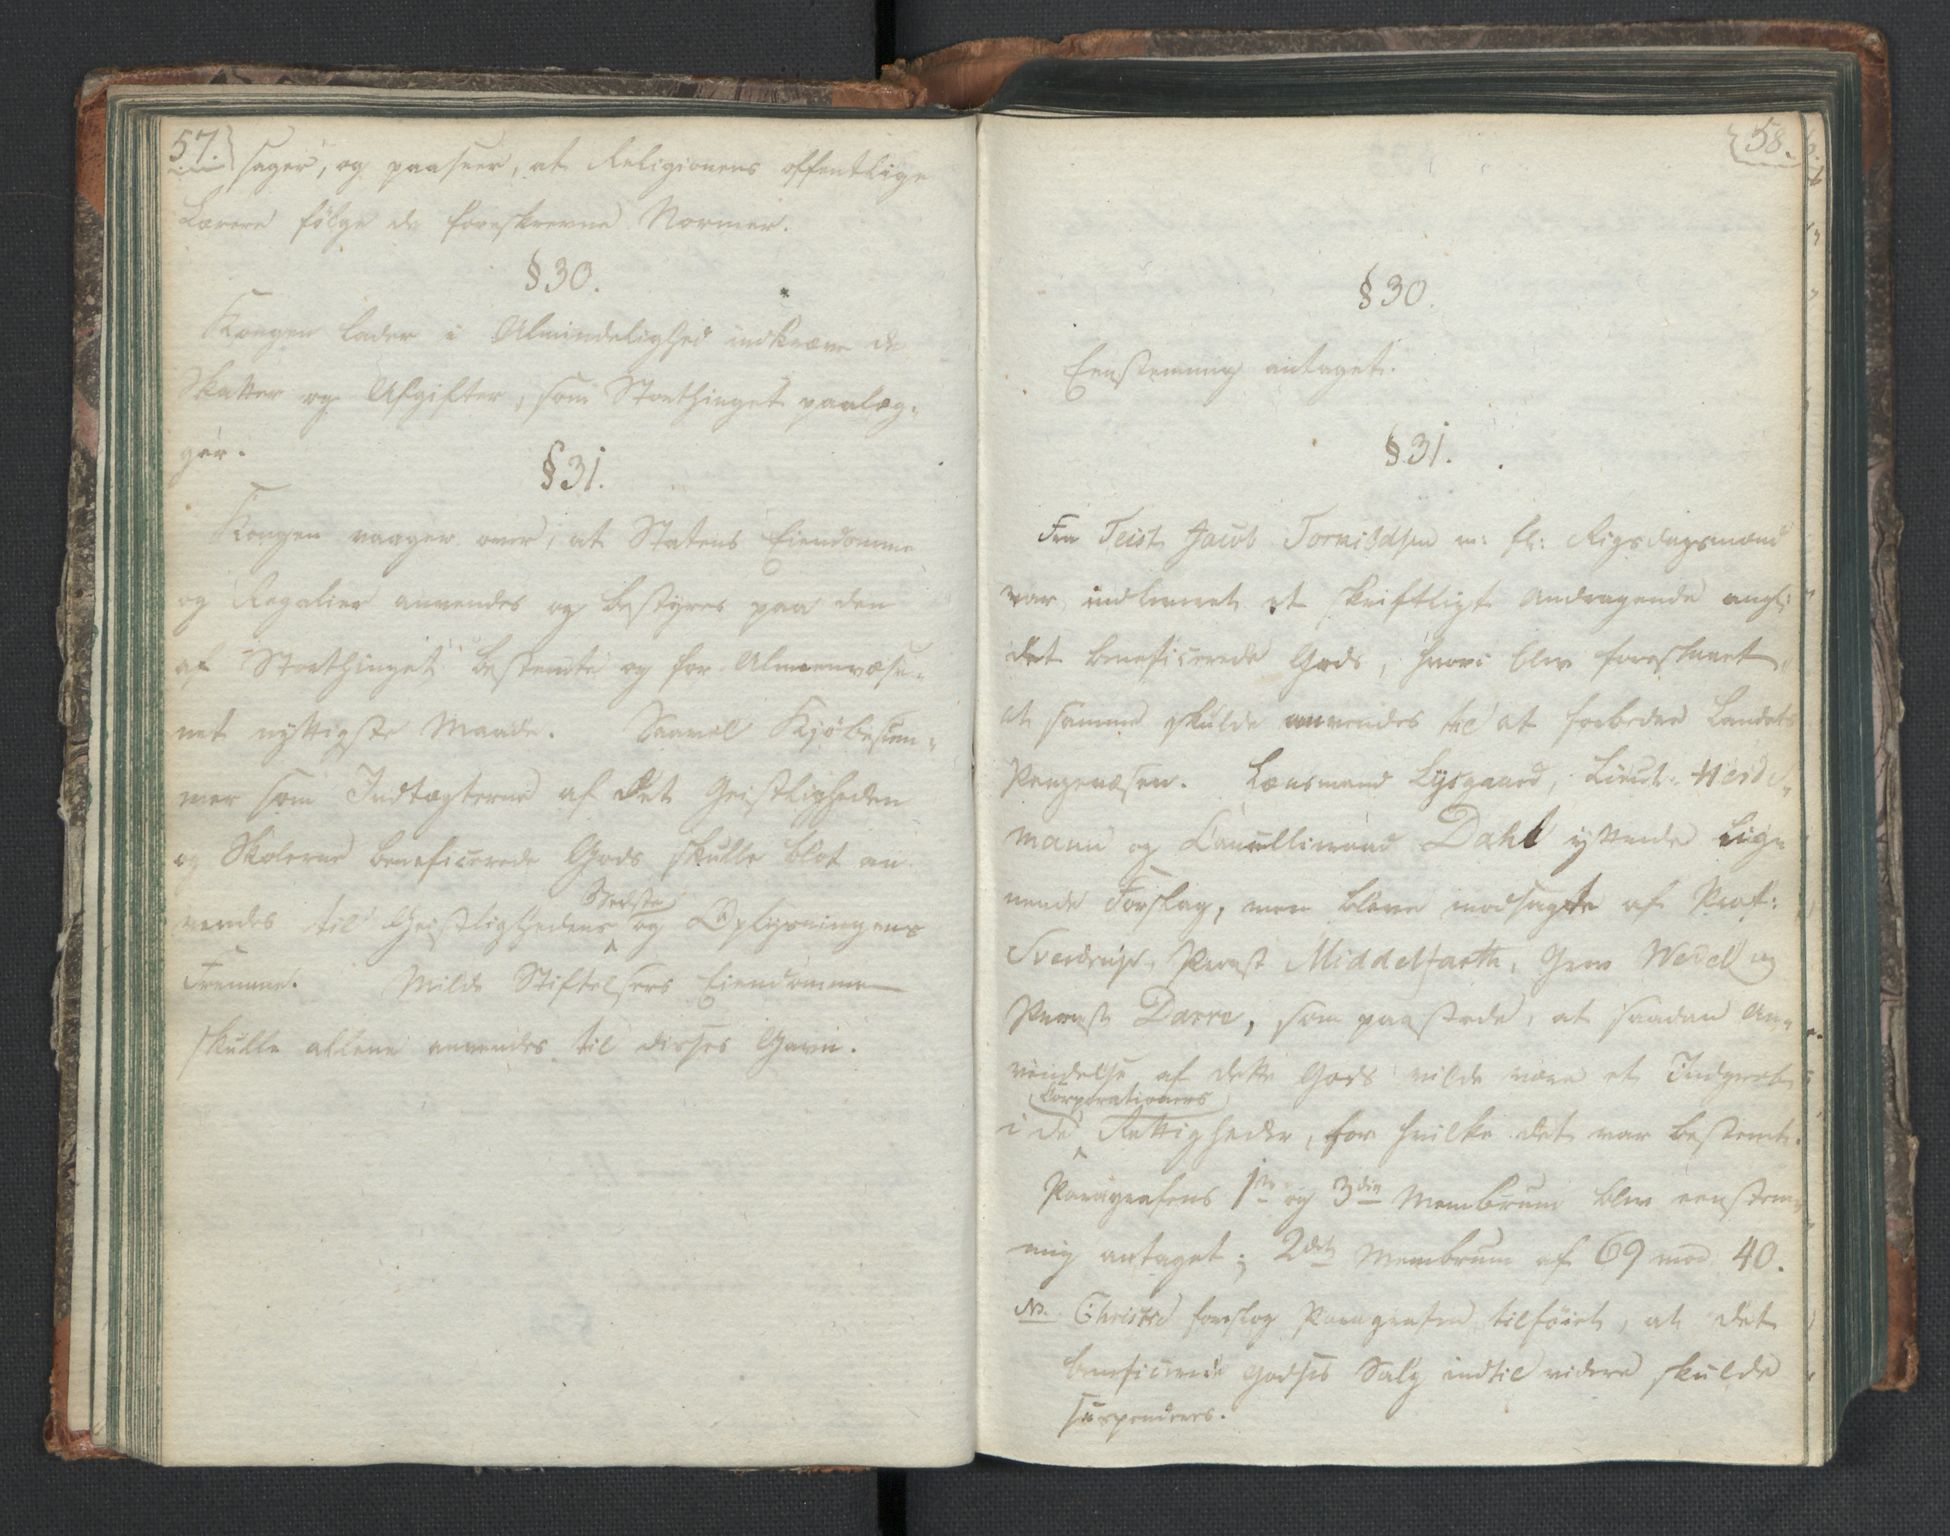 57.
sager, og paaseer, at Religionens offentlige
Lærere følge de foreskrevne Normer.
§ 30.
Kongen lader i Almindelighed indkræve de
Skatter og Afgifter, som Storthinget paalæg-
ger.
§ 31.
Kongen vaager over, at Statens Eiendomme
og Regalier anvendes og bestyres paa den
af Storthinget bestemte og for Almeenvæse-
net nyttigste Maade. Saavel Kjøbesum-
mer som Indtægterne af det Geistligheden
og Skolerne beneficerede Gods skulle blot an-
vendes til Geistlighedens Bedste og Oplysningens
Fremme. Milde Stiftelsers Eiendomme
skulle allene anvendes til disses Gavn.
58.
§ 30.
Eenstemmig antaget.
§ 31.
Fra Teist, Jacob m: fl: Rigsdagsmænd
var indleveret et skriftligt Andragende ang:
det beneficerede Gods, hvori blev foreslaaet,
at samme skulde anvendes til at forbedre Landets
Pengevæsen. Lænsmand Lysgaard, Lieut: Heide-
mann og Cancelliraad Dahl yttrede lig-
nende Forslag, men bleve modsagte af Prof:
Sverdrup, Provst Middelfarth, Grev Wedel og
Provst Darre, som paastode, at saadan An-
vendelse af dette Gods vilde være et Indgreb
i de Corporationers Rettigheder, for hvilke det var bestemt.
Paragrafens 1ste og 3die Membrum blev eenstem-
mig antaget; 2det Membrum af 69 mod 40.
NB. Christie foreslog Paragrafen tilføiet, at det
beneficerede Godses Salg indtil videre skulde
suspenderes.